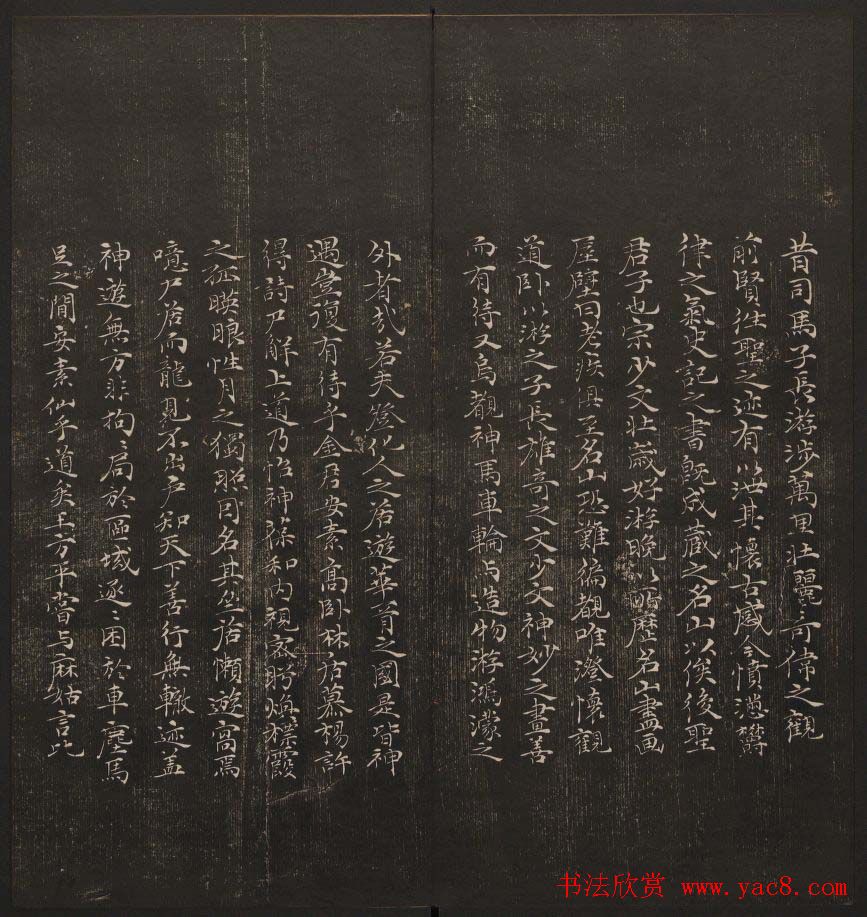 昔司馬子長游涉萬里壯麗奇偉之觀
前賢往聖之迹有以泄其懷古感今憤懣鬱
律之氣史記之書既成藏之名山以俟後聖
君子也宗少文壯歲好游晚以所歷名山盡画
屋壁曰老疾俱至名山恐難徧覩唯澄懷觀
道卧以游之子長雄奇之文少文神妙之畫善
而有待又烏覩神馬車輪与造物游鴻濛之
外者哉若夫登化人之居遊華胥之國是皆神
遇豈復有待乎金君安素高卧林居慕楊許
得詩尸解上道乃怡神葆和内視寂聆煥標霞
之孤暎眼性月之獨照因名其坐居懶遊窩焉
噫尸居而龍見不出戶知天下善行無轍迹盖
神遊無方非拘〻局於區域逐〻困於車塵馬
足之間安素仙乎道矣王方平嘗与麻姑言比
书法欣赏 www.yac8.com